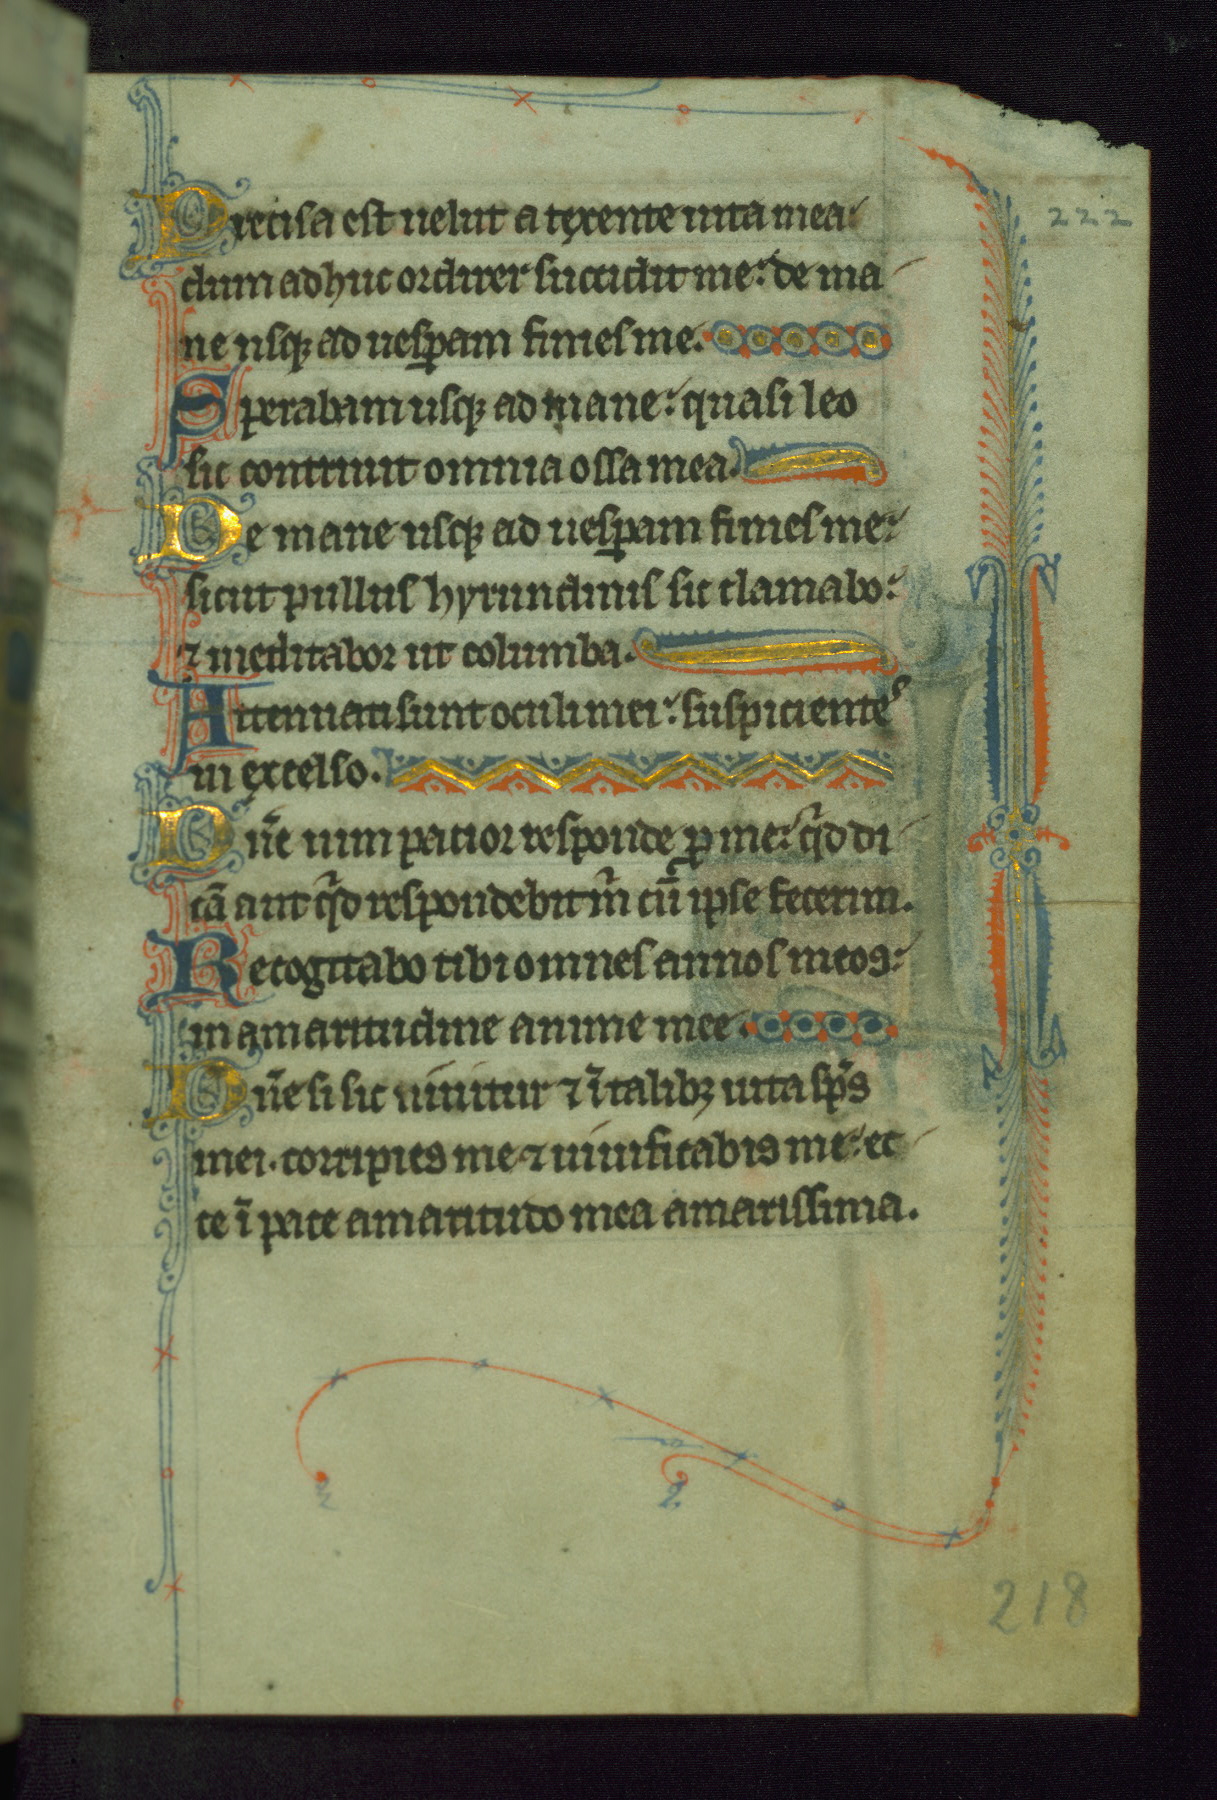 222
Precisa est uelut a tęxente uita mea:
dum adhuc ordirer succidit me: de ma
ne usqꝫ ad uesꝑam finies me.
Sperabam usqꝫ ad mane: quasi leo
sic contriuit omnia ossa mea.
De mane usqꝫ ad uesꝑam finies me:
sicut pullus hyrundinis sic clamabo:
⁊ meditabor ut columba.
Attenuati sunt oculi mei: suspicientes
in ęxcelso.
Dn̄e uim patior responde ꝓ me: qͥd di
cā aut qͥd respondebit m̄ cū ipse fecerim.
Recogitabo tibi omnes annos meos:
in amaritudine anime mee.
Dn̄e si sic uiuitur ⁊ ī talibꝫ uita sp̄s
mei. corripies me ⁊ uiuificabis me: ec
ce ī pace amaritudo mea amarissima.
218